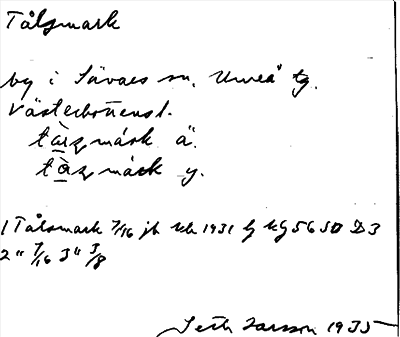 Tålsmark
by i Sävars sn. Umeå tg.
Västerbottensl.
tàrzmárk ä.
tàzmárk y.
1 Tålsmark 7/16 jb Ub 1931 G KG 56 SO D3
2 " 7/16 J " 3/8
Seth Larsson 1935